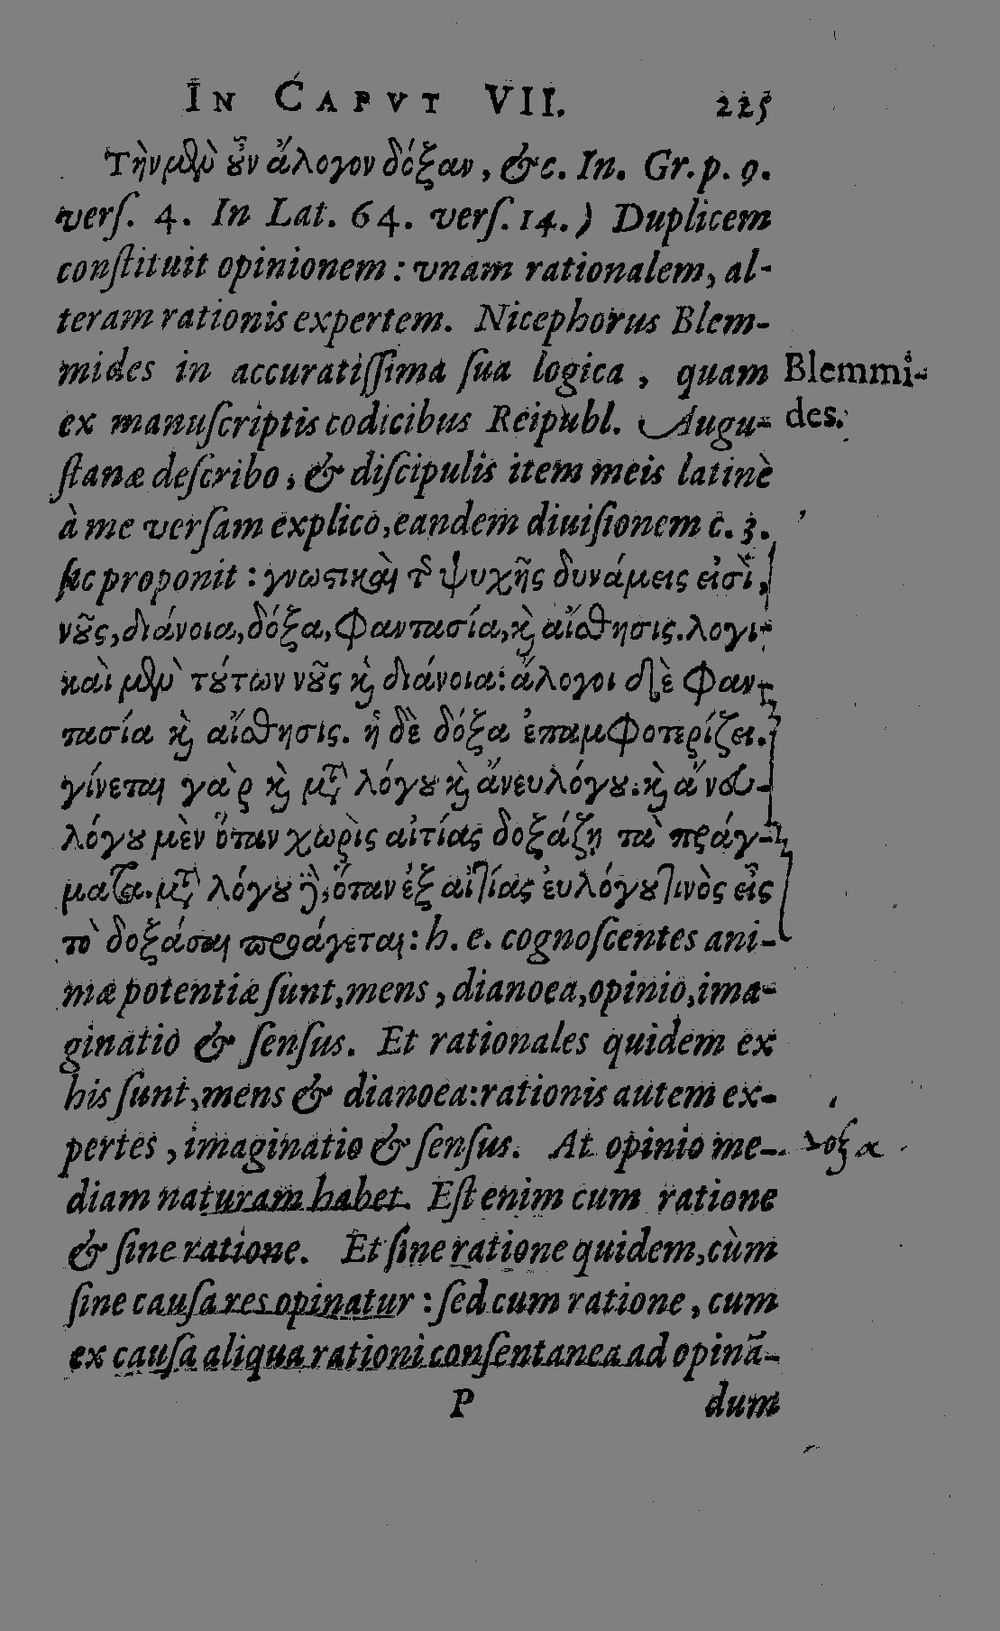 IN CAPVT VII. 225
Τὴν μὲν οὖν ἄλογον δόξαν, &c. In. Gr. p. 9.
verſ. 4. In Lat. 64. verſ. 14.) Duplicem
conſtituit opinionem: vnam rationalem, al-
teram rationis expertem. Nicephorus Blem-
mides in accuratiſſima ſua logica, quam
Blemmi-
ex manuſcriptis codicibus Reipubl. Augu-
des.
ſtanæ deſcribo, & diſcipulis item meis latinè
à me verſam explico, eandem diuiſionem c. 3.
ſic proponit: γνωστικαὶ τῆς ψυχῆς δυνάμεις εἰσὶ,
νοῦς, διάνοια, δόξα, φαντασία, καὶ αἴσθησις. λογι-
καὶ μὲν τούτων νοῦς καὶ διάνοια: ἄλογοι δὲ φαν-
τασία καὶ αἴσθησις. ἡ δὲ δόξα ἐπαμφοτερίζει.
γίνεται γὰρ καὶ μετὰ λόγου καὶ ἄνευ λόγου. καὶ ἄνευ
λόγου μὲν ὅταν χωρὶς αἰτίας δοξάζῃ τὰ πράγ-
ματα. μετὰ λόγου δὲ, ὅταν ἐξ αἰτίας εὐλόγου τινὸς εἰς
τὸ δοξάσαι προάγεται: h. e. cognoſcentes ani-
mæ potentiæ ſunt, mens, dianoea, opinio, ima-
ginatio & ſenſus. Et rationales quidem ex
his ſunt, mens & dianoea: rationis autem ex-
pertes, imaginatio & ſenſus. At opinio me-
δοξα
diam naturam habet. Eſt enim cum ratione
& ſine ratione. Et ſine ratione quidem, cùm
ſine cauſa res opinatur: ſed cum ratione, cum
ex cauſa aliqua rationi conſentanea ad opinā-
P dum